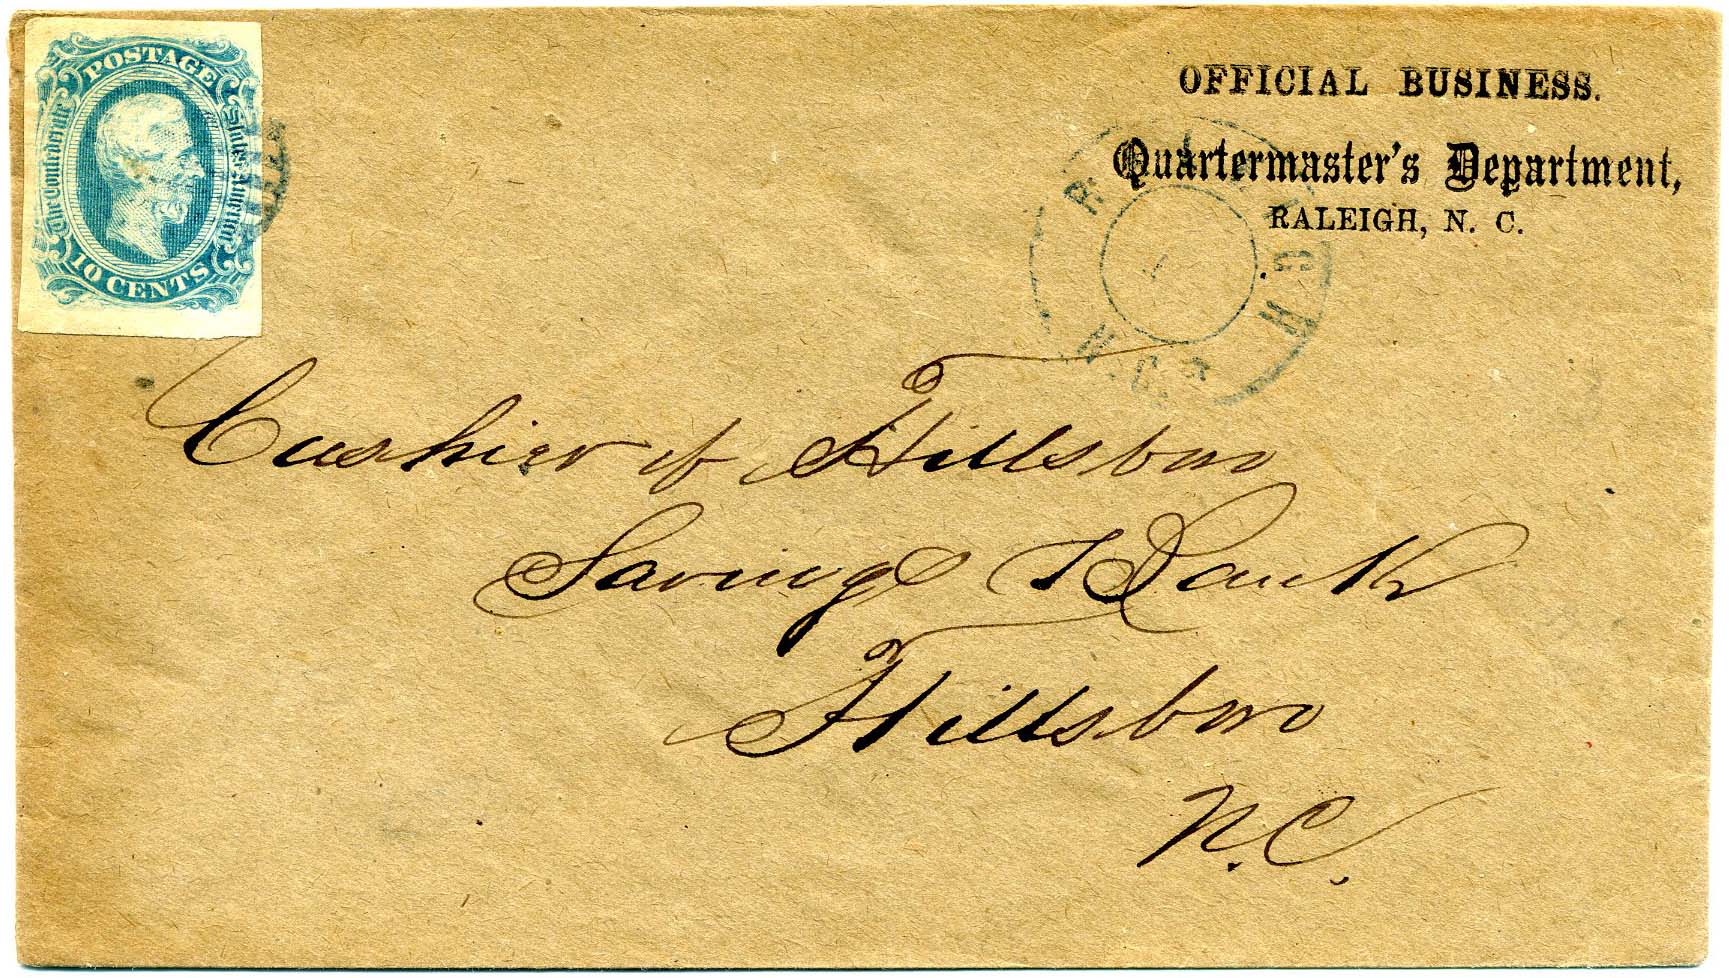 POSTAGE
The Confederate States of America
10 CENTS
OFFICIAL BUSINESS.
Quartermaster's Department,
RALEIGH, N. C.
N.C.
Cashier of Hillsboro
Savings Bank
Hillsboro
N.C.